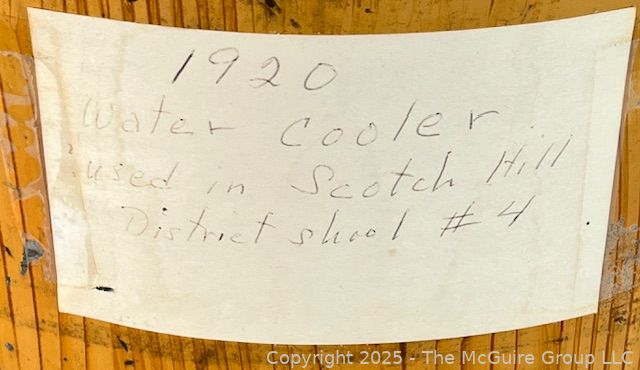 1920
Water Cooler
used in Scotch Hill
District shool #4
Copyright 2025 - The McGuire Group LLC